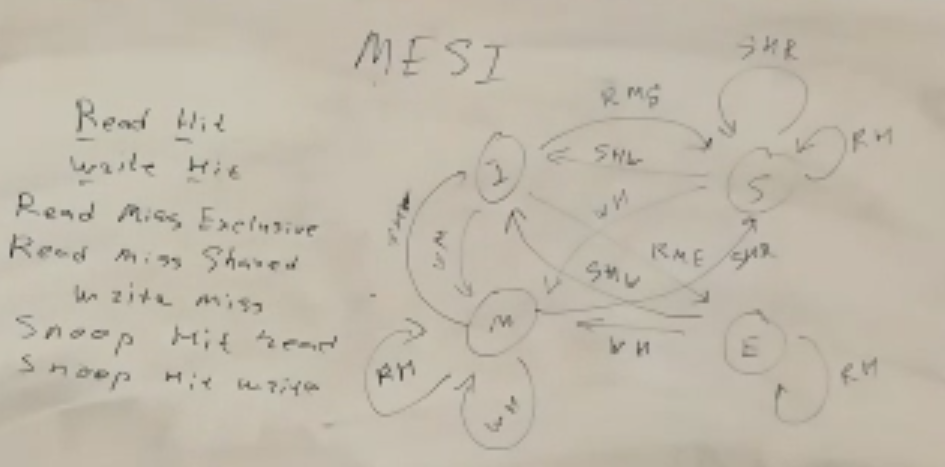 MESI
Read Hit
Write Hit
Read Miss Exclusive
Read Miss Shared
Write Miss
Snoop Hit Read
Snoop Hit Write
SHR
RMS
RH
SHW
I
S
WH
WM
RME
SHR
SHW
M
E
WH
RH
RH
WH